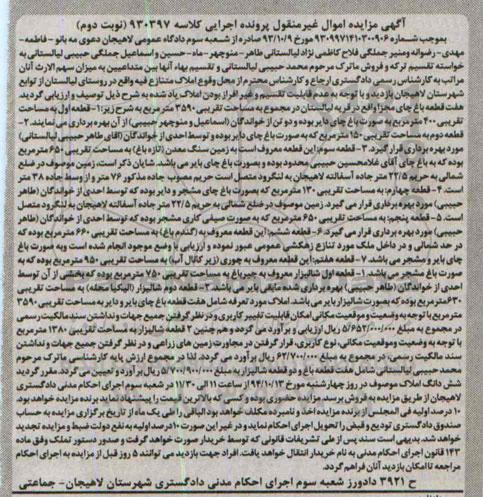 آگهی مزایده اموال غیرمنقول پرونده اجرایی کلاسه ۹۳۰۳۹۷ (نوبت دوم)
بموجب شماره ۹۳۰۹۹۷۱۴۱۰۳۰۰۹۰۶ - ۹۳/۱۰/۹ صادره از شعبه سوم دادگاه عمومی لاهیجان دعوی مه بانو - فاطمه -
مهدی - رضوانه و منیر جملگی فلاح کاظمی نژاد لیالستانی بطرفیت طاهر - منوچهر - ماه - حسین و اسماعیل جملگی حبیبی لیالستانی به
خواسته تقسیم ترکه و فروش ماترک مرحوم محمد حبیبی لیالستانی و تقسیم بهاء آنها بین متداعیین به میزان سهم الارث آنان
مراتب به کارشناس رسمی دادگستری ارجاع و کارشناس محترم از محل وقوع املاک متنازع فیه واقع در روستای لیالستان از توابع
شهرستان لاهیجان بازدید و با توجه به عدم قابلیت تقسیم و غیر افراز بودن املاک یاد شده به شرح ذیل توصیف و ارزیابی گردید
هفت قطعه باغ چای مجزا واقع در قریه لیالستان در مجموع به مساحت تقریبی ۳۵۹۰ مترمربع به شرح زیر: ۱- قطعه اول به مساحت
تقریبی ۴۰۰ مترمربع به صورت باغ چای دایر بوده و دو تن از خواندگان (اسماعیل و منوچهر حبیبی) از آن بهره برداری می نمایند. ۲-
قطعه دوم به مساحت تقریبی ۱۵۰ مترمربع که به صورت باغ چای دایر بوده و توسط احدی از خواندگان (آقای طاهر حبیبی لیالستانی)
مورد بهره برداری قرار گیرد. ۳- قطعه سوم: این قطعه معروف است به زمین سنگ معدن (تازه باغ) به مساحت تقریبی ۶۵۰ مترمربع
بوده که به باغ چای آقای غلامحسین حبیبی محدود بوده و بصورت باغ چای بایر می باشد. شایان ذکر است، زمین موصوف در ضلع
شمالی به حریم ۲۲/۵ متر جاده آسفالته لاهیجان به لنگرود متصل است حریم مصوب جاده مذکور ۷۶ متر و از وسط جاده ۳۸ متر
است. ۴- قطعه چهارم: به مساحت تقریبی ۱۳۰ مترمربع که بصورت باغ چای مشجر و دایر بوده که توسط احدی از خواندگان (طاهر
حبیبی) مورد بهره برداری قرار می گیرد. زمین موصوف در ضلع شمالی به حریم ۲۲/۵ متر جاده آسفالته لاهیجان به لنگرود متصل
است. ۵- قطعه پنجم: به مساحت تقریبی ۶۵۰ مترمربع که به صورت صیفی کاری مشجر بوده که توسط احدی از خواندگان (طاهر
حبیبی) مورد بهره برداری قرار می گیرد. ۶- قطعه ششم: این قطعه معروف به (گندم باغ) به مساحت تقریبی ۶۶۰ مترمربع بوده که
در حد شمالی و در داخل ملک مورد تنازع زهکشی عمومی عبور نموده و ارزیابی از وضع موجود انجام شده است و به صورت باغ
چای بایر و مشجر می باشد. ۷- قطعه هفتم: این قطعه معروف به چوری (زیر کانال آب) به مساحت تقریبی ۹۵۰ مترمربع بوده که به
صورت باغ مشجر می باشد. ۱- قطعه اول شالیزار معروف به جیرباغ به مساحت تقریبی ۷۵۰ مترمربع بوده که بخشی از آن توسط
احدی از خواندگان (طاهر حبیبی) بهره برداری شده مابقی بایر می باشد. ۲- قطعه دوم شالیزار (الیکیا محله) به مساحت تقریبی
۶۳۰ مترمربع بوده که بصورت شالیزار بایر می باشد. املاک مورد تعرفه شامل هفت قطعه باغ چای بایر و دایر به مساحت تقریبی ۳۵۹۰
مترمربع با توجه به وضعیت و موقعیت مکانی امکان قابلیت تغییر کاربری و در نظر گرفتن جمیع جهات و نداشتن سند مالکیت رسمی
در مجموع به مبلغ ۵/۶۵۲/۰۰۰/۰۰۰ ریال ارزیابی و برآورد می گردد و هم چنین ۲ قطعه شالیزار، به مساحت تقریبی ۱۳۸۰ مترمربع
با توجه به وضعیت و موقعیت مکانی، نوع کاربری، قرار گرفتن در مجاورت زمین های زراعی و در نظر گرفتن جمیع جهات و نداشتن
سند مالکیت رسمی، در مجموع به مبلغ ۶۲/۷۰۰/۰۰۰ ریال برآورد می گردد. لذا در مجموع ارزش پایه کارشناسی ماترک مرحوم
محمد حبیبی لیالستانی شامل هفت قطعه باغ و دو قطعه شالیزار به مبلغ ۵/۷۰۰/۹۰۰/۰۰۰ ریال برآورد و تعیین می گردد. مقرر گردید
شش دانگ املاک موصوف در روز چهارشنبه مورخ ۹۴/۱۰/۱۳ از ساعت ۱۱ الی ۱۱/۳۰ در شعبه سوم اجرای احکام مدنی دادگستری
لاهیجان از طریق مزایده به فروش برسد مزایده حضوری بوده و کسی که بالاترین قیمت را پیشنهاد نماید برنده مزایده خواهد بود.
۱۰ درصد اولیه فی المجلس از برنده مزایده اخذ و نامبرده مکلف خواهد بود الباقی را طی یک ماه از تاریخ برگزاری مزایده به حساب
صندوق دادگستری تودیع و قبض را تحویل اجرای احکام نماید و در غیر این صورت ۱۰ درصد اولیه به نفع دولت ضبط و مزایده تجدید
خواهد شد. بدیهی است سند پس از طی تشریفات قانونی که توسط خریدار صورت خواهد گرفت و صدور دستور تملک وفق ماده
۱۴۳ قانون اجرای احکام مدنی به نام خریدار انتقال خواهد یافت. افراد جهت بازدید می توانند ۵ روز قبل از مزایده به اجرای احکام
مراجعه تا امکان بازدید آنان فراهم گردد.
ح ۳۹۲۱ دادورز شعبه سوم اجرای احکام مدنی دادگستری شهرستان لاهیجان - جماعتی